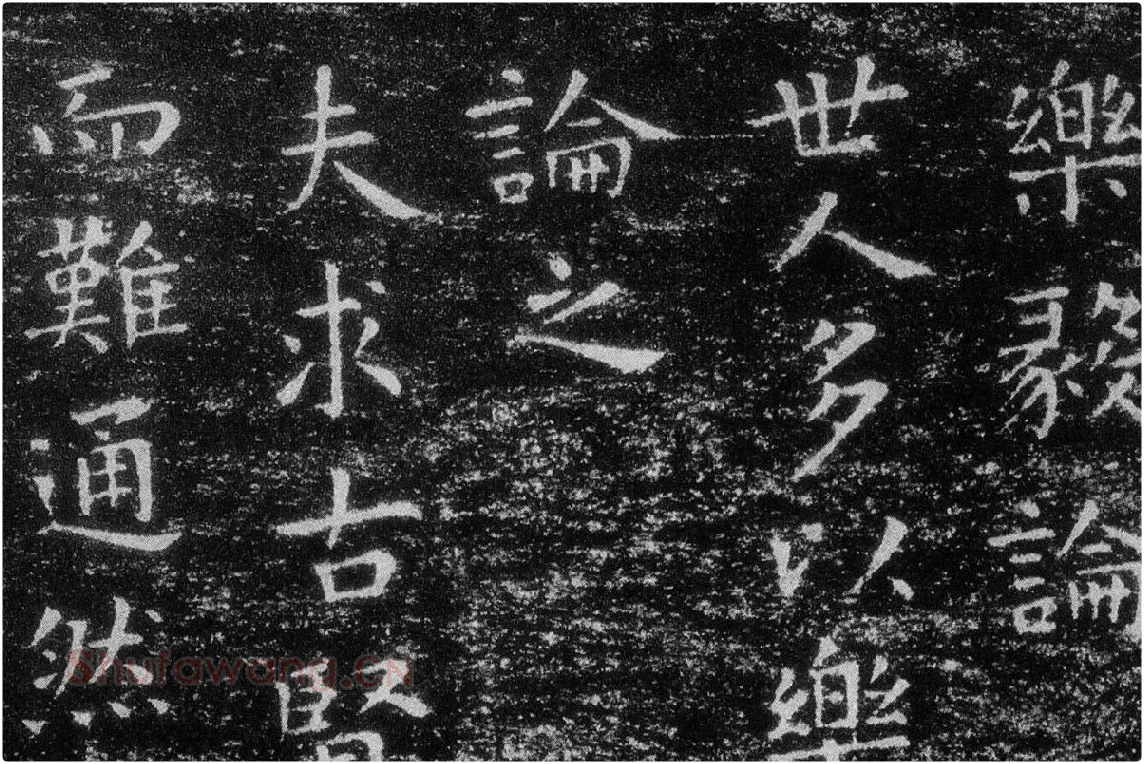 樂毅論
世人多以樂
論之
夫求古賢
而難通然
Shufawang.cn